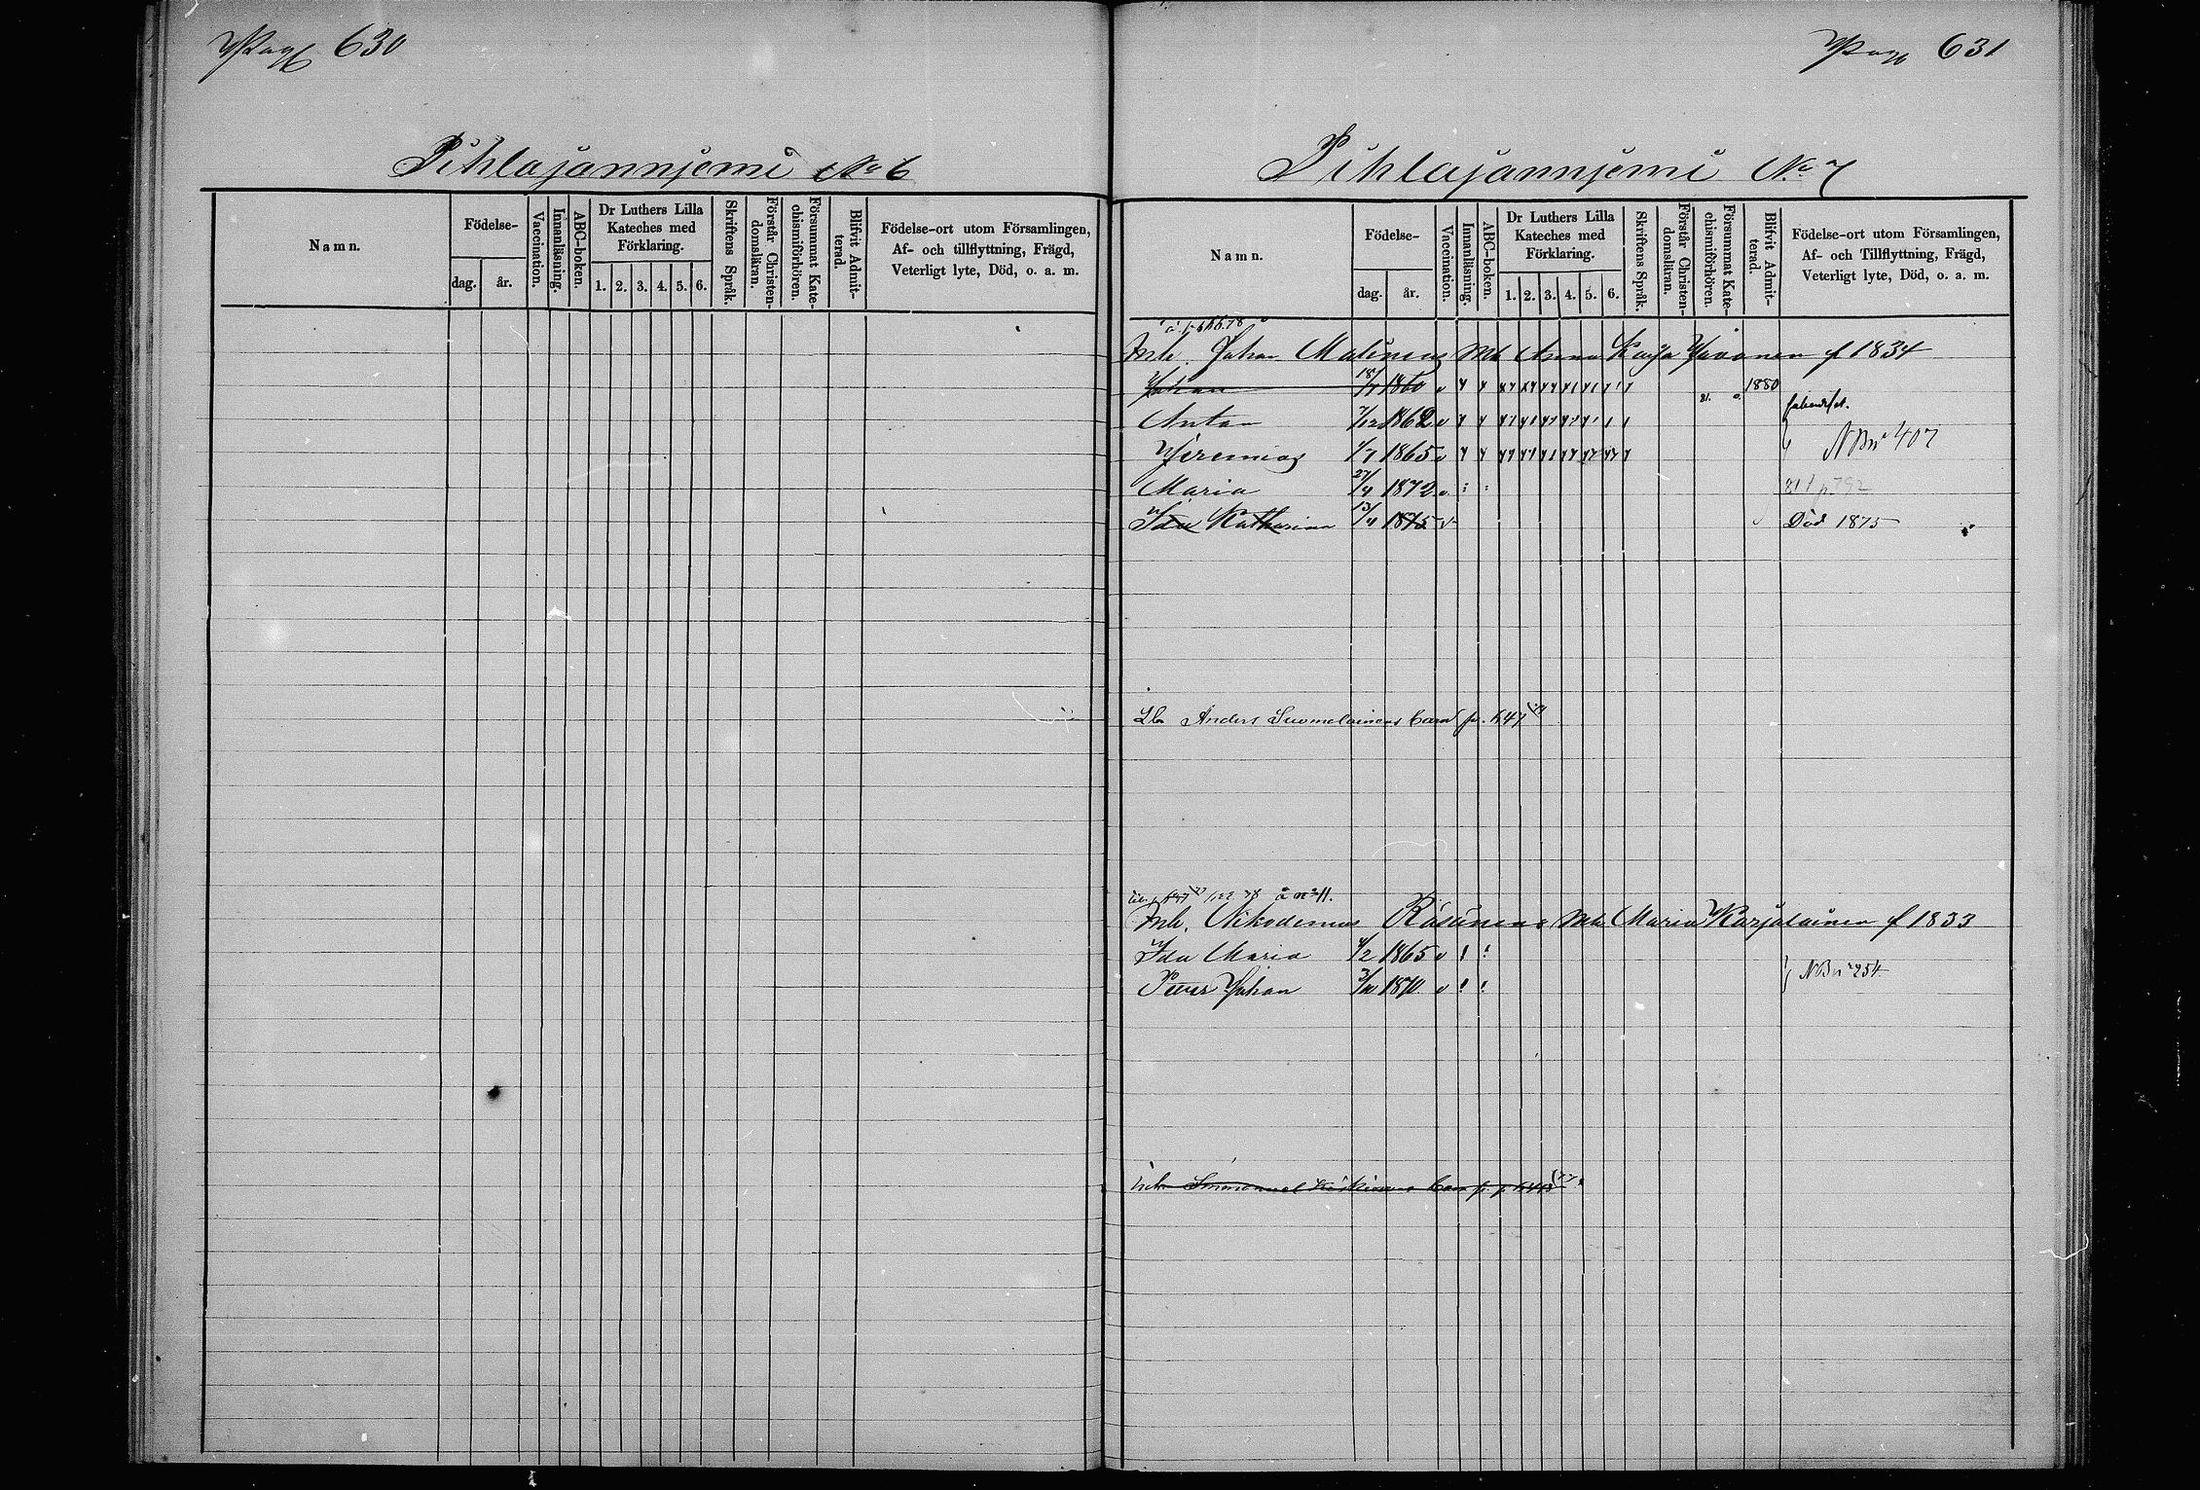 Pag 630
Pihlajanniemi No 6
Namn.
Födelse-
dag.
år.
Vaccination.
Innanläsning.
ABC-boken.
Dr Luthers Lilla
Kateches med
Förklaring.
1. 2. 3. 4. 5. 6.
Skriftens Språk.
Förstår Christen-
domsläran.
Försummat Kate-
chismiförhören.
Blifvit Admit-
terad.
Födelse-ort utom Församlingen,
Af- och tillflyttning, Frägd,
Veterligt lyte, Död, o. a. m.
Pag 631
Pihlajanniemi No 7
Namn.
Födelse-
dag.
år.
Vaccination.
Innanläsning.
ABC-boken.
Dr Luthers Lilla
Kateches med
Förklaring.
1. 2. 3. 4. 5. 6.
Skriftens Språk.
Förstår Christen-
domsläran.
Försummat Kate-
chismiförhören.
Blifvit Admit-
terad.
Födelse-ort utom Församlingen,
Af- och Tillflyttning, Frägd,
Veterligt lyte, Död, o. a. m.
Inh. Johan Malinens Mh Anna Kaisa f 1834
Johan 18/7 1860 v 1880
Anton 7/12 1862 v
Jeremias 1/7 1865 v NB nr 407
Maria 27/4 1872 v
Ida Katharina 13/4 1875 v Död 1875
Anders Suomelainens barn p. 647
Inh. Nikodemus Räsänens Mh. Maria Karjalainen f 1833
Ida Maria 4/2 1865 v
Petter Johan 3/10 1870 v
NB nr 254